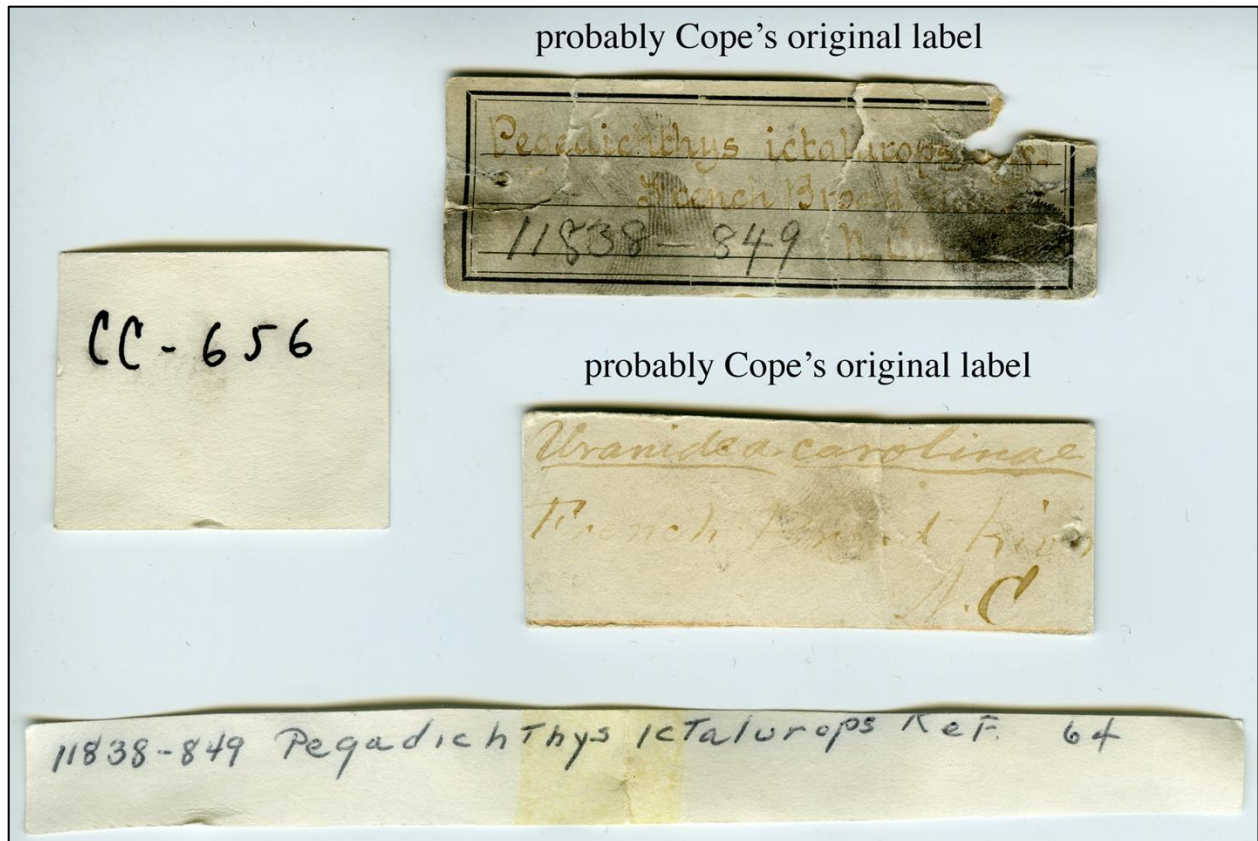 probably Cope's original label
Pegedichthys ictalurops
French Broad
11838-849 N.C.
CC-656
probably Cope's original label
Uranidea carolinae
French Broad River
N.C
11838-849 Pegadichthys ictalurops Ref. 64